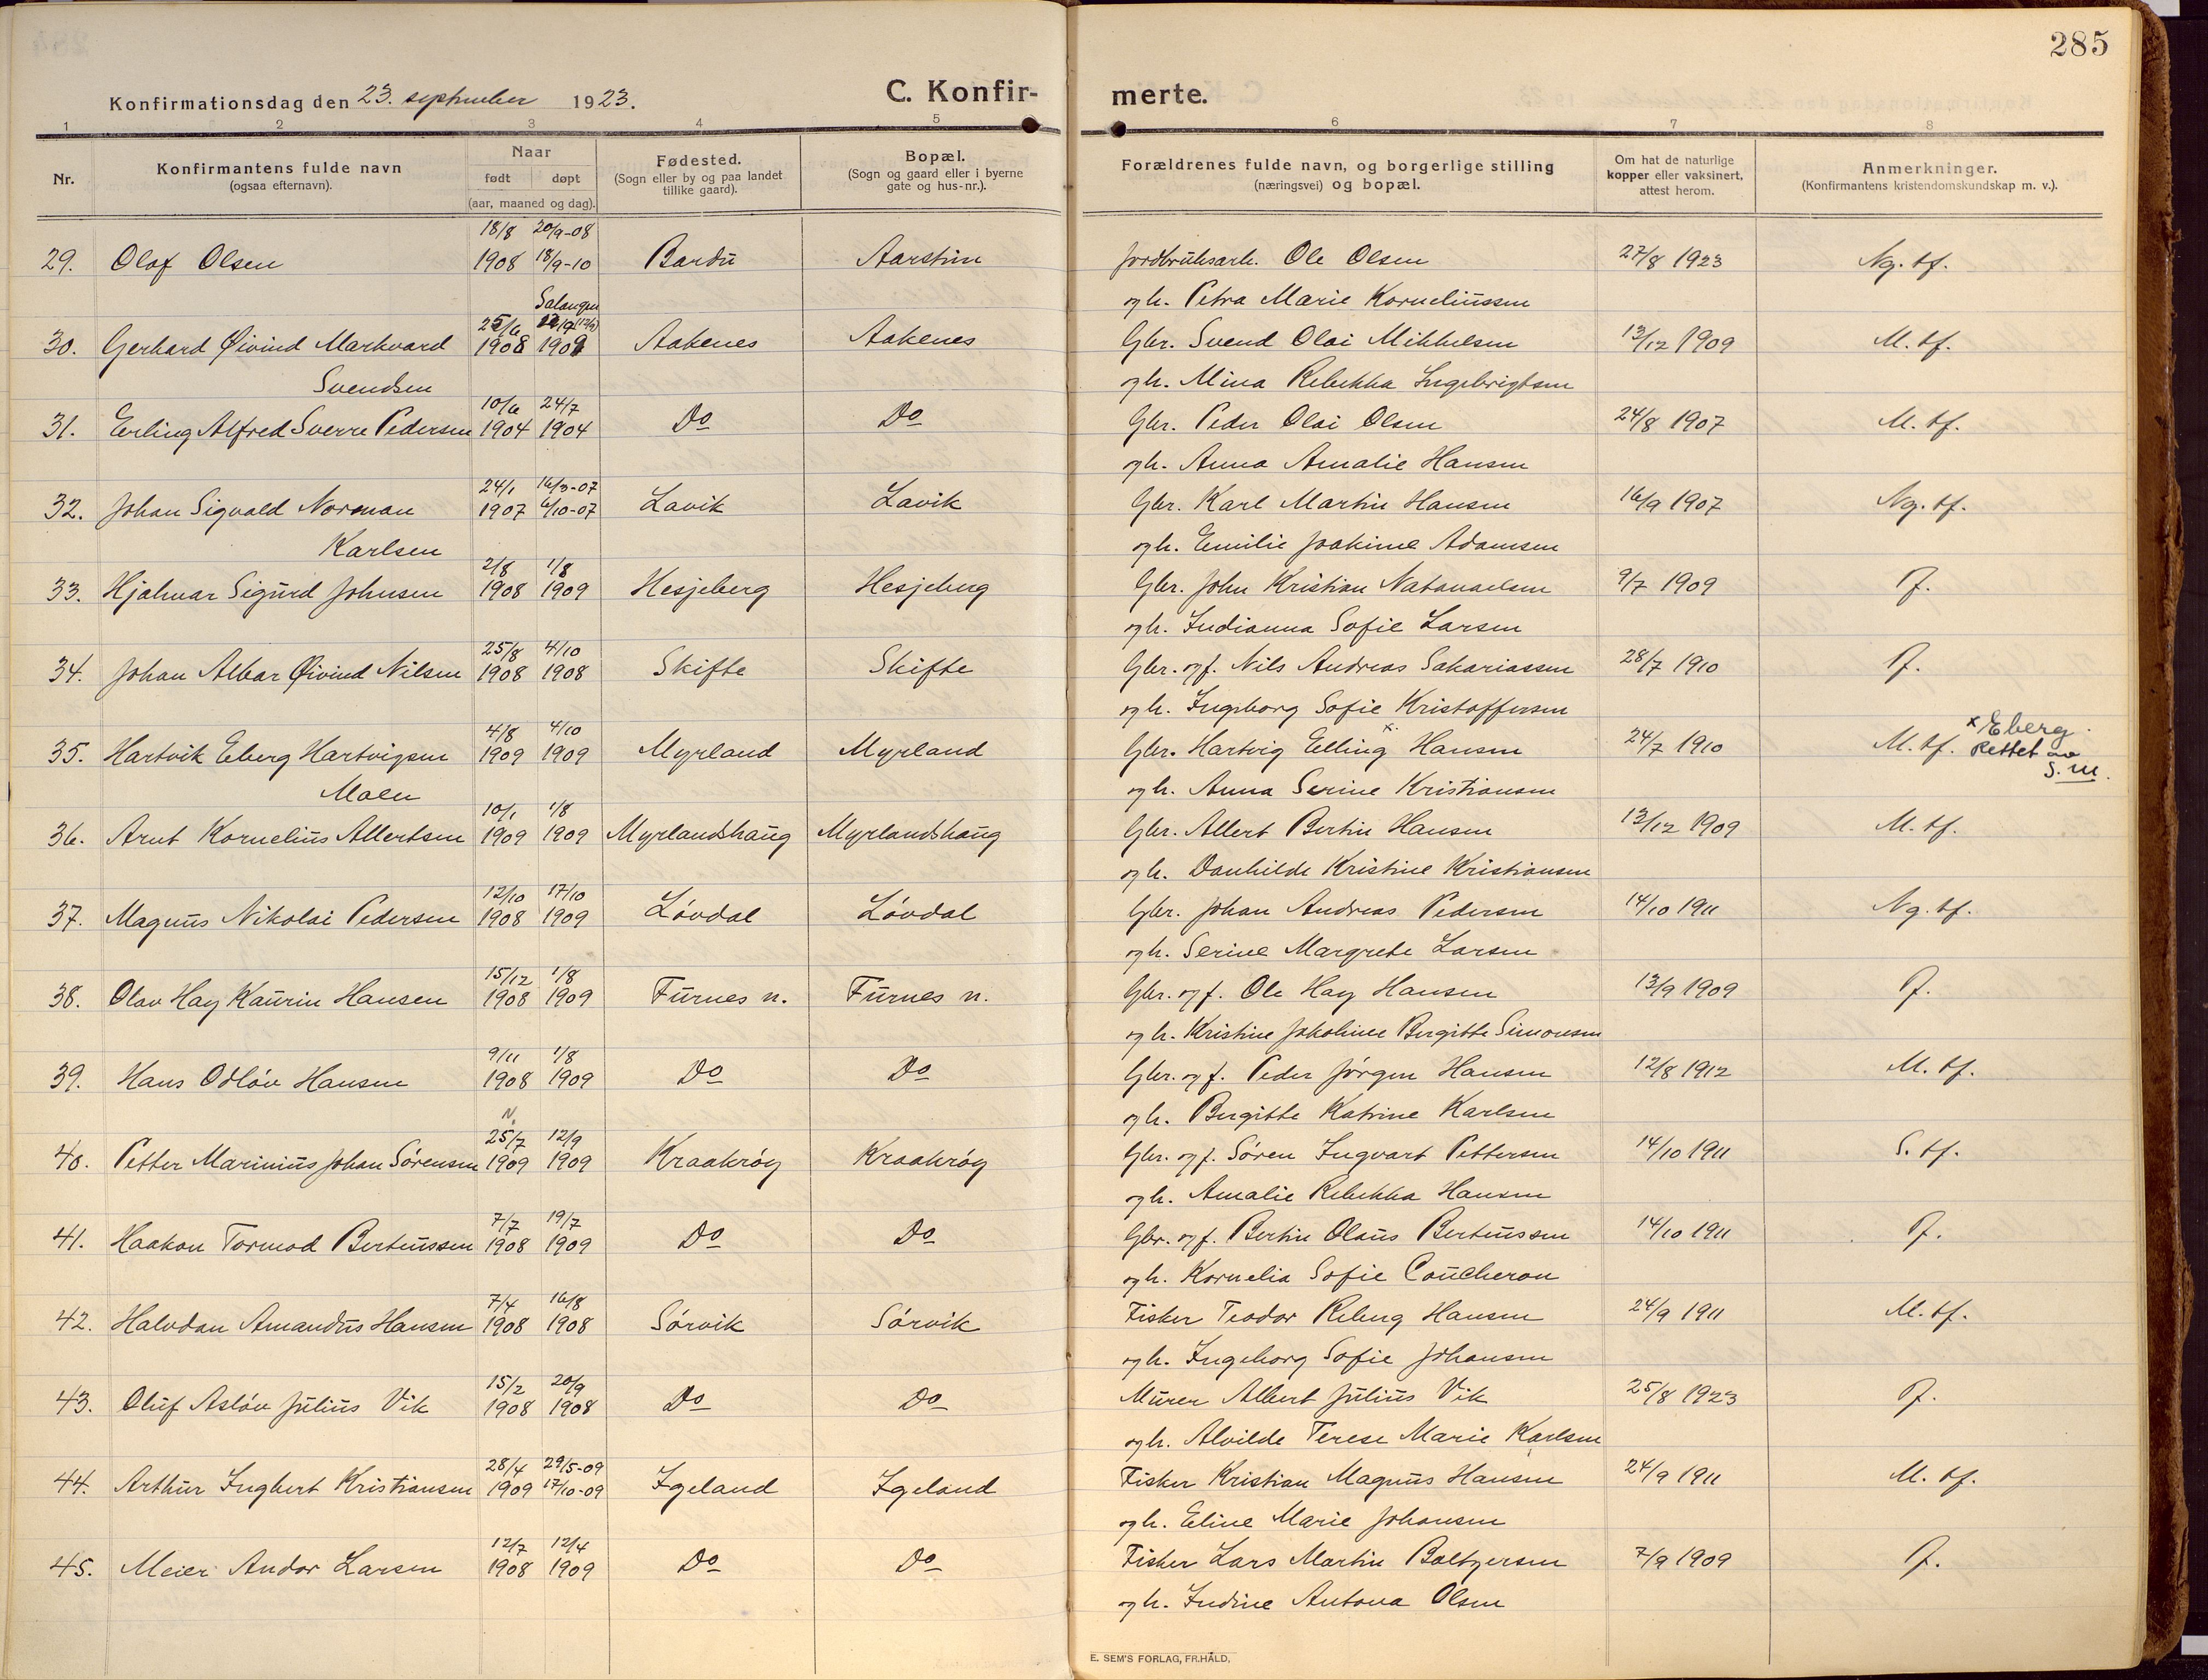 285
Konfirmationsdag den 23. september 1923.
C. Konfir-
merte.
1 2 3 4 5 6 7 8
Nr.
Konfirmantens fulde navn
(ogsaa efternavn).
Naar
født døpt
(aar, maaned og dag).
Fødested.
(Sogn eller by og paa landet
tillike gaard).
Bopæl.
(Sogn og gaard eller i byerne
gate og hus-nr.).
Forældrenes fulde navn, og borgerlige stilling
(næringsvei) og bopæl.
Om hat de naturlige
kopper eller vaksinert,
attest herom.
Anmerkninger.
(Konfirmantens kristendomskundskap m. v.).
18/8 20/9-08
29. Olaf Olsen 1908 18/9-10 Bardu Aarstein Jordbruksarb. Ole Olsen 27/8 1923 Ng. tf.
Salangen
og h. Petra Marie Korneliussen
25/6
30. Gerhard Øivind Markvard 1908 1909 Aakenes Aakenes Gbr. Svend Olai Mikkelsen 13/12 1909 M. tf.
Svendsen og h. Mina Rebekka Ingebrigtsen
10/6 24/7
31. Erling Alfred Sverre Pedersen 1904 1904 Do Do Gbr. Peder Olai Olsen 24/8 1907 M. tf.
og h. Anna Amalie Hansen
24/1 16/3-07
32. Johan Sigvald Norman 1907 6/10-07 Lavik Lavik Gbr. Karl Martin Hansen 16/9 1907 Ng. tf.
Karlsen og h. Emilie Joakime Adamsen
2/8 1/8
33. Hjalmar Sigurd Johnsen 1908 1909 Hesjeberg Hesjeberg Gbr. John Kristian Natanaelsen 9/7 1909 J.
og h. Indianna Sofie Larsen
25/8 4/10
34. Johan Albar Øivind Nilsen 1908 1908 Skifte Skifte Gbr. og f. Nils Andreas Sakariassen 28/7 1910 J.
og h. Ingeborg Sofie Kristoffersen
4/8 4/10 x Eberg.
35. Hartvik Eberg Hartvigsen 1909 1909 Myrland Myrland Gbr. Hartvig Elling x Hansen 24/7 1910 M. tf. Rettet av
S. M.
Moen og h. Anna Serine Kristiansen
10/1 1/8
36. Arnt Kornelius Allertsen 1909 1909 Myrlandshaug Myrlandshaug Gbr. Allert Bertin Hansen 13/12 1909 M. tf.
og h. Danhilde Kristine Kristiansen
12/10 17/10
37. Magnus Nikolai Pedersen 1908 1909 Løvdal Løvdal Gbr. Johan Andreas Pedersen 14/10 1911 Ng. tf.
og h. Serine Margrete Larsen
15/12 1/8
38. Olav Hay Kaurin Hansen 1908 1909 Furnes n. Furnes n. Gbr. og f. Ole Hay Hansen 13/9 1909 J.
og h. Kristine Jakobine Birgitte Simonsen
9/11 1/8
39. Hans Odløv Hansen 1908 1909 Do Do Gbr. og f. Peder Jørgen Hansen 12/8 1912 M. tf.
og h. Birgitte Katrine Karlsen
N.
25/7 12/9
40. Petter Marinius Johan Sørensen 1909 1909 Kraakrøy Kraakrøy Gbr. og f. Søren Ingvart Pettersen 14/10 1911 S. tf.
og h. Amalie Rebekka Hansen
7/7 19/7
41. Haakon Tormod Berteussen 1908 1909 Do Do Gbr. og f. Bertin Olaus Berteussen 14/10 1911 J.
og h. Kornelia Sofie Coucheron
7/4 16/8
42. Halvdan Amandus Hansen 1908 1908 Sørvik Sørvik Fisker Teodor Reberg Hansen 24/9 1911 M. tf.
og h. Ingeborg Sofie Johansen
15/2 20/9
43. Oluf Asløv Julius Vik 1908 1908 Do Do Murer Albert Julius Vik 25/8 1923 J.
og h. Alvilde Terese Marie Karlsen
28/4 29/5-09
44. Arthur Ingbert Kristiansen 1909 17/10-09 Igeland Igeland Fisker Kristian Magnus Hansen 24/9 1911 M. tf.
og h. Eline Marie Johansen
12/7 12/4
45. Meier Andor Larsen 1908 1909 Do Do Fisker Lars Martin Baltzersen 7/9 1909 J.
og h. Indine Antona Olsen
E. SEM'S FORLAG, FR.HALD.